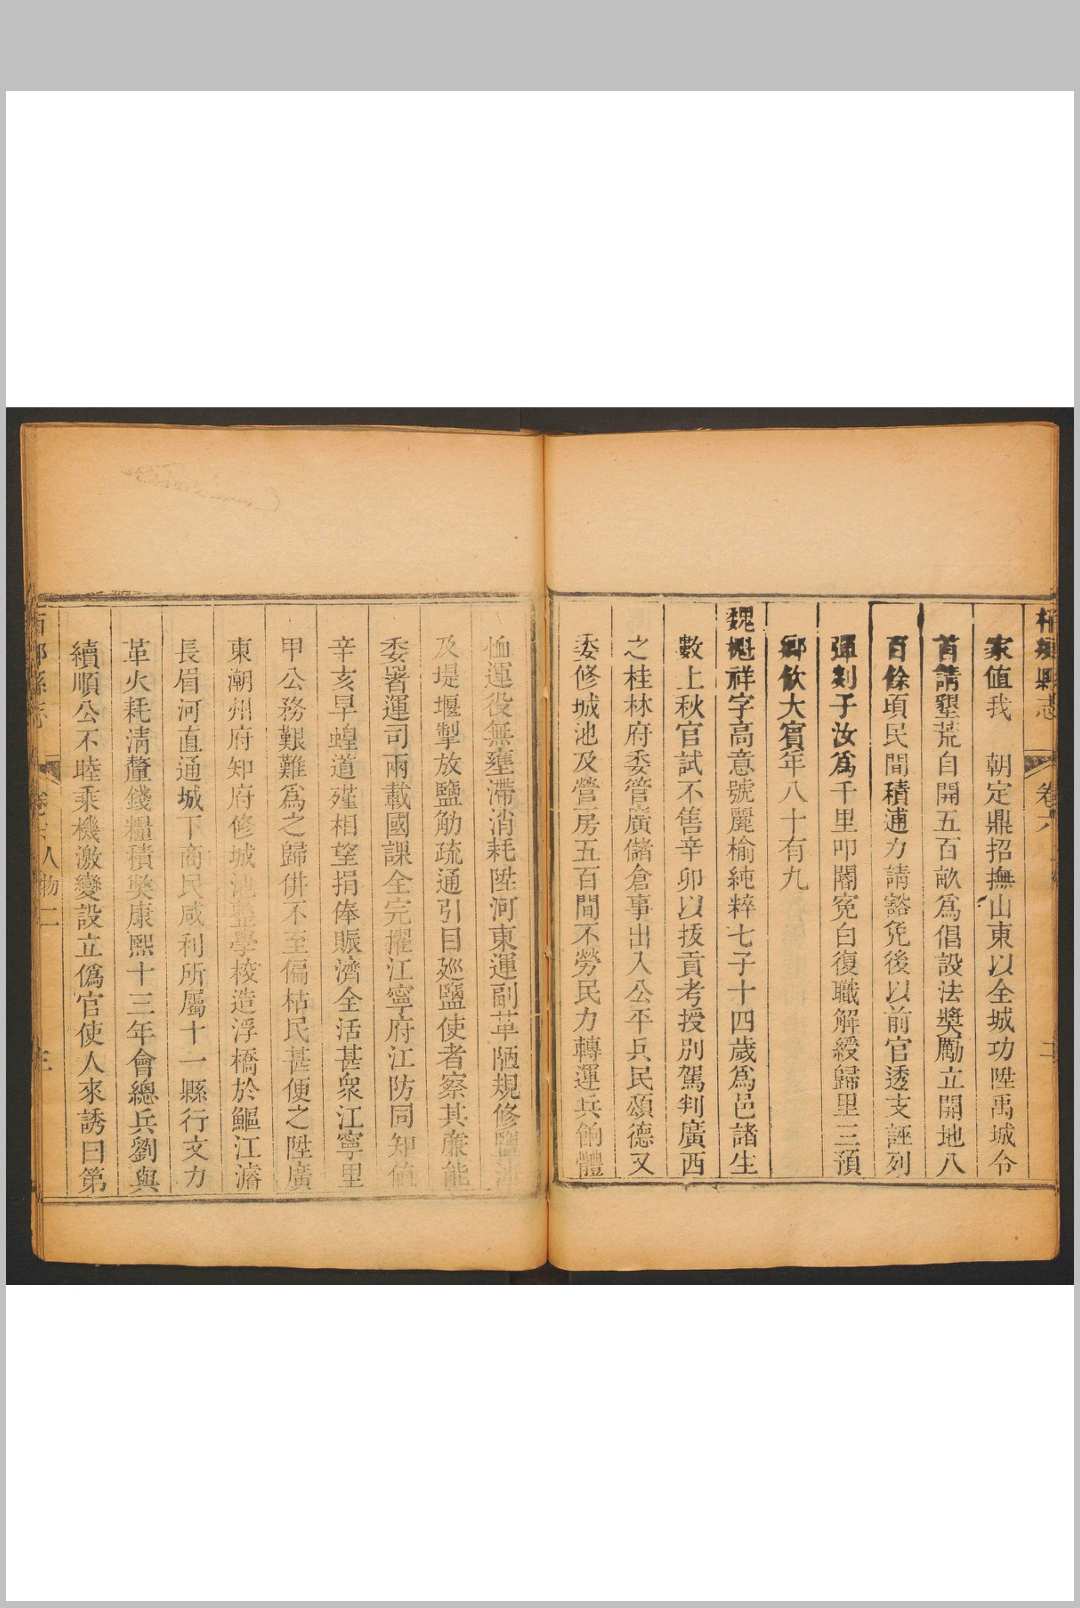 縣志
卷六
家值我　朝定鼎招撫山東以全城功陞禹城令
首請墾荒自開五百畝爲倡設法奬勵立開地八
百餘頃民間積逋力請豁凭後以前官透支誣列
彈利子汝爲千里叩閽寃白復職解綬歸里三預
鄉飲大賓年八十有九
魏魁祥字高意號麗榆純粹七子十四歲爲邑諸生
數上秋官試不售辛卯以拔貢考授別駕判廣西
之桂林府委管廣儲倉事出入公平兵民頌德又
委修城池及營房五百間不勞民力轉運兵餉體
恤運役無壅滯消耗陞河東運副革陋規修鹽池
及堤堰掣放鹽觔疏通引目廵鹽使者察其廉能
委署運司兩載國課全完擢江寧府江防同知値
辛亥旱蝗道殣相望捐俸賑濟全活甚衆江寧里
甲公務艱難爲之歸併不至偏枯民甚便之陞廣
東潮州府知府修城池整學校造浮橋於鱷江濬
長眉河直通城下商民咸利所屬十一縣行文力
革火耗清釐錢糧積獘康熙十三年會總兵劉與
續順公不睦乘機激變設立僞官使人來誘曰第
縣志
人物二